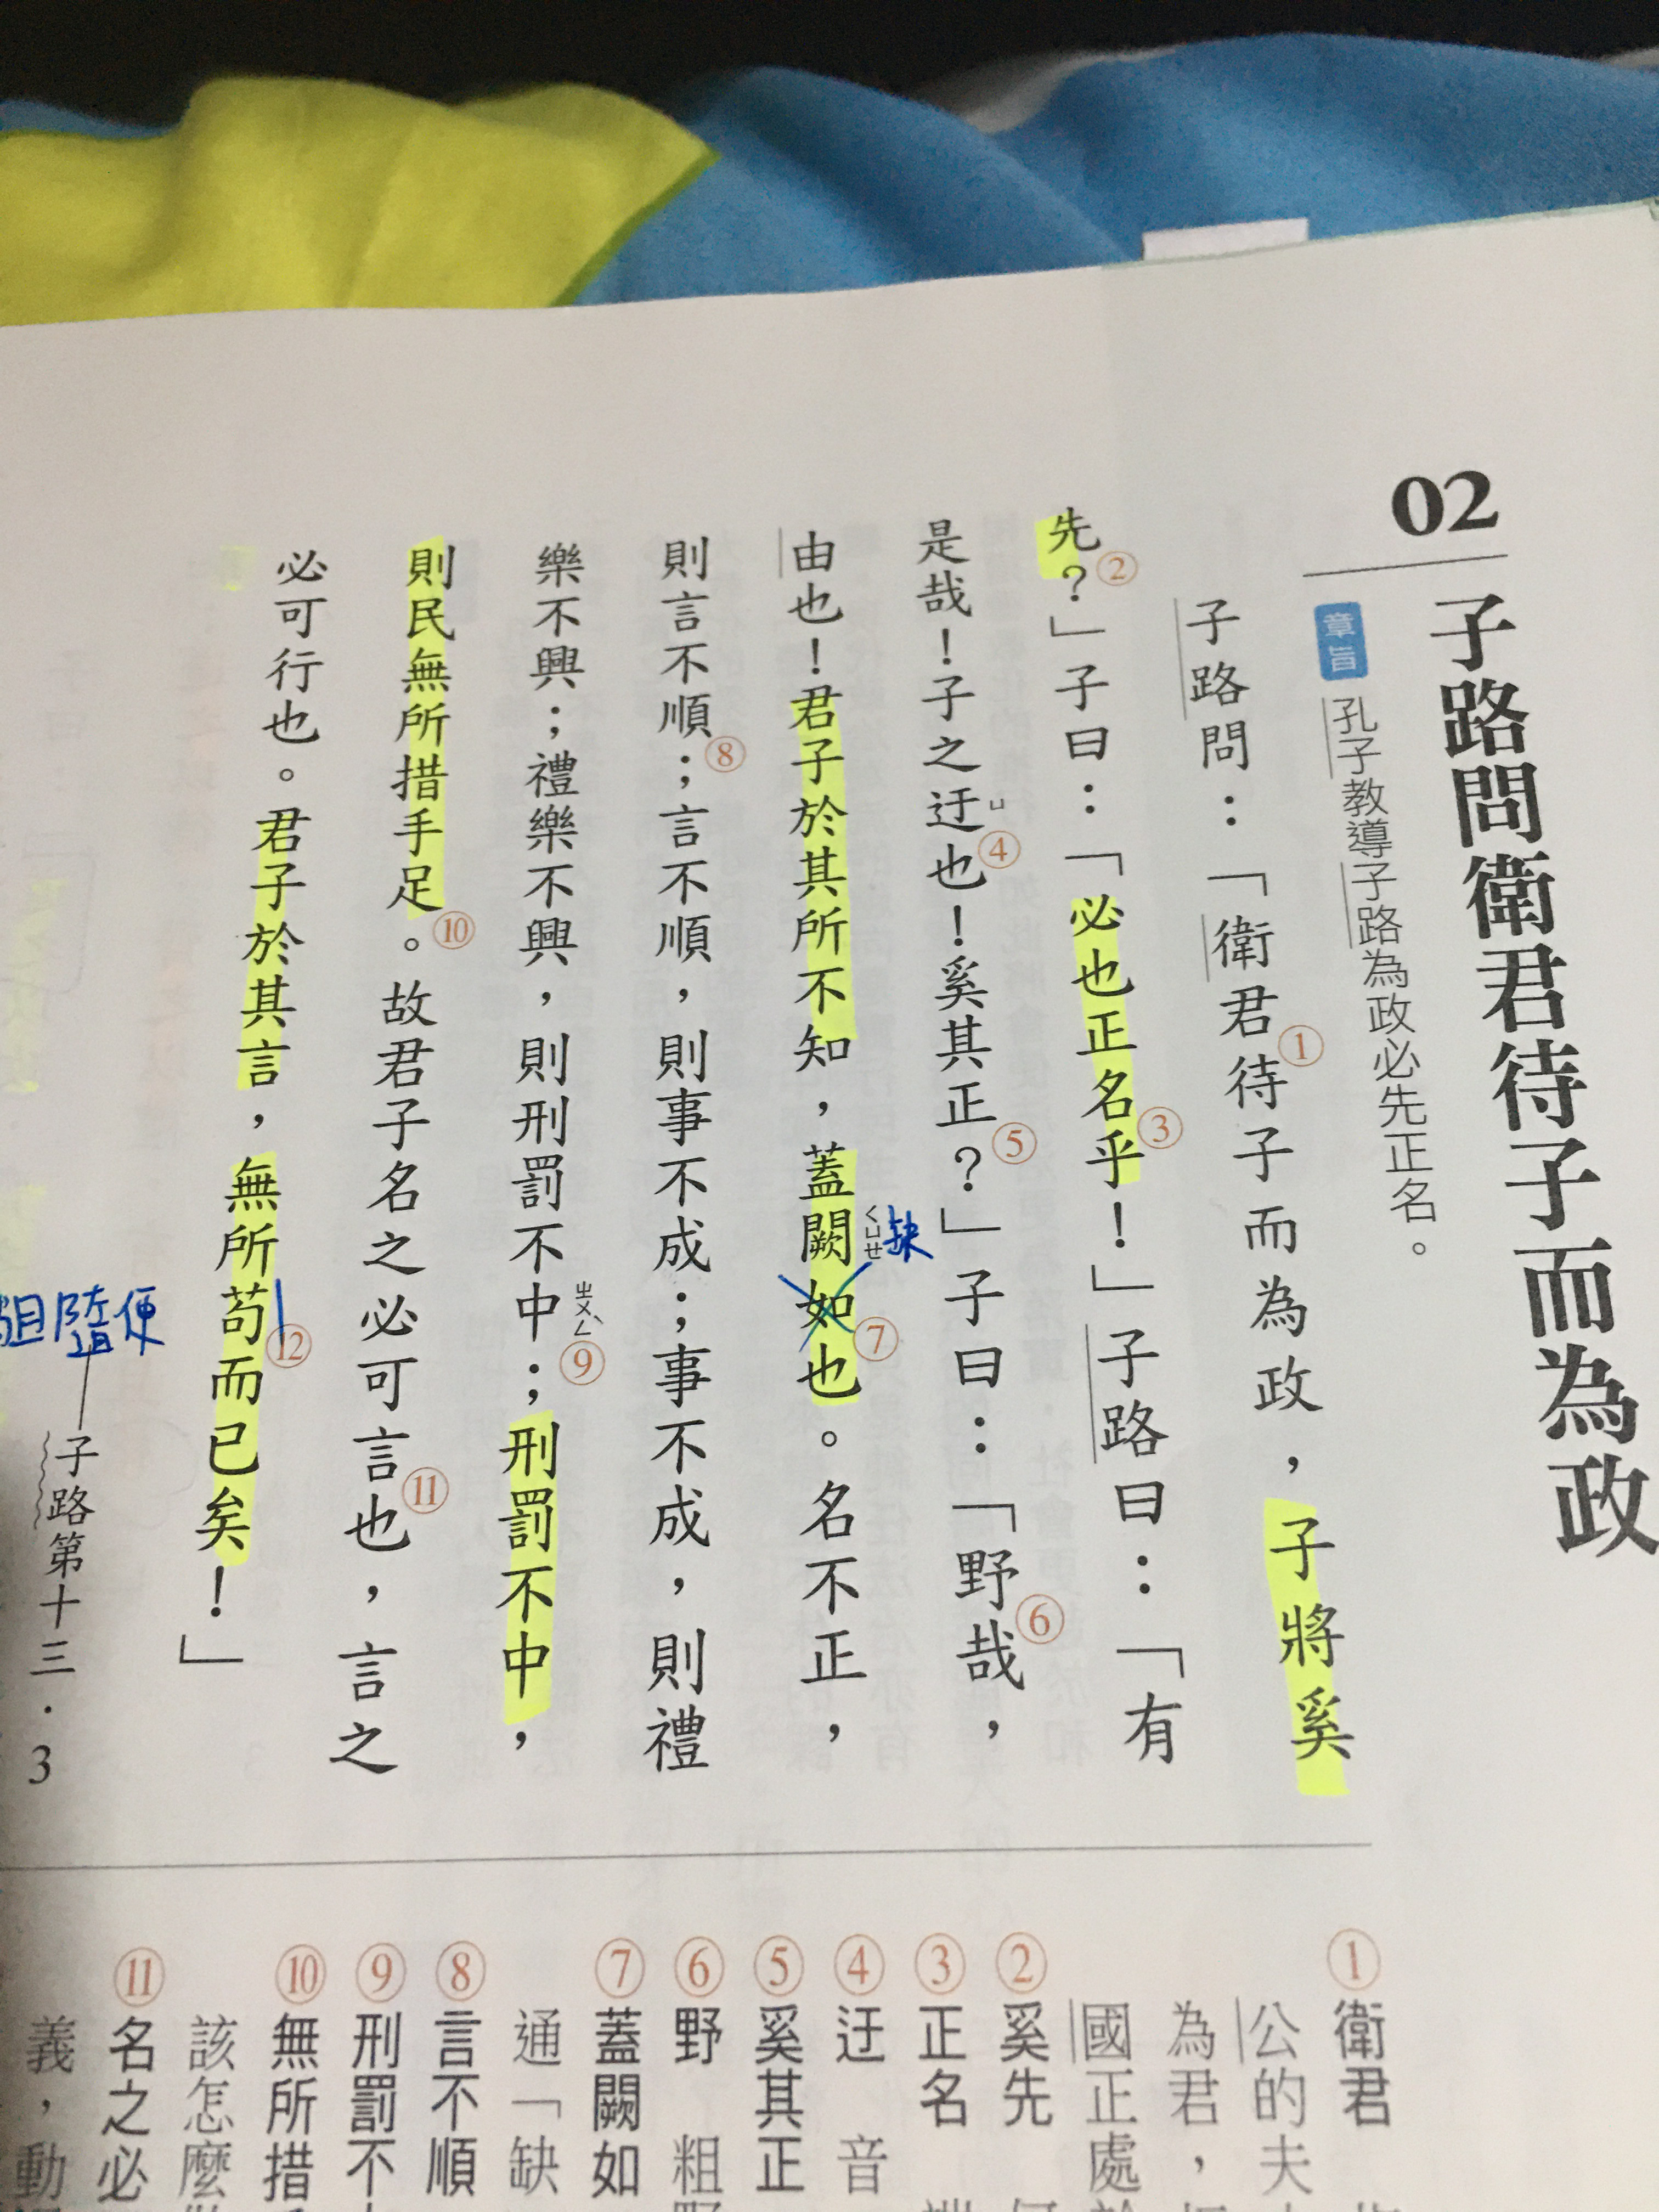 02
子路問衛君待子而為政
章旨 孔子教導子路為政必先正名。
子路問：「衛君①待子而為政，子將奚
先②？」子曰：「必也正名③乎！」子路曰：「有
是哉！子之迂ㄩ④也！奚其正⑤？」子曰：「野⑥哉，
由也！君子於其所不知，蓋闕ㄑㄩㄝ如⑦也。名不正，
缺
則言不順⑧；言不順，則事不成；事不成，則禮
樂不興；禮樂不興，則刑罰不中ㄓㄨㄥˋ⑨；刑罰不中，
則民無所措手足⑩。故君子名之必可言⑪也，言之
必可行也。君子於其言，無所苟⑫而已矣！」
隨便
子路第十三．3
①衛君
公的夫
為君，
國正處
②奚先
③正名
④迂 音
⑤奚其正
⑥野 粗
⑦蓋闕如
通「缺
⑧言不順
⑨刑罰不
⑩無所措
該怎麼
⑪名之必
義，動